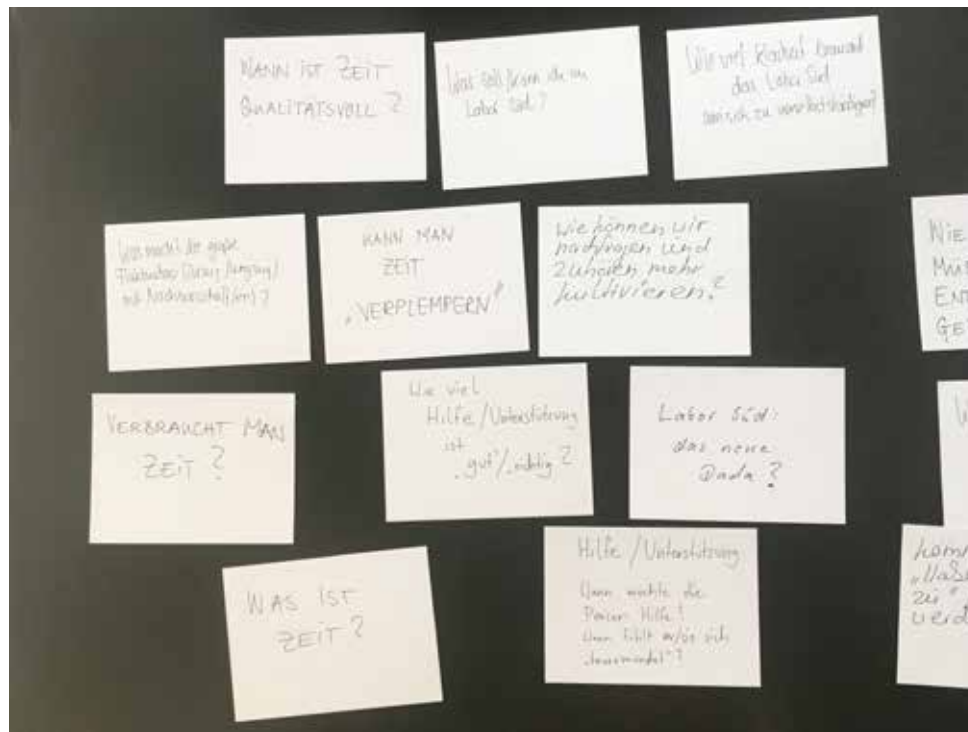 WANN IST ZEIT
QUALITÄTSVOLL?
Was soll/kann ich im
Labor Süd?
Wie viel Rückhalt braucht
das Labor Süd
um sich zu verselbstständigen?
Was macht der große
mit
KANN MAN
ZEIT
„VERPLEMPERN“
Wie können wir
nachfragen und
zuhören mehr
kultivieren?
NIE
MÜS
ENT
GE
VERBRAUCHT MAN
ZEIT?
Wie viel
Hilfe/Unterstützung
ist
„gut“/„richtig“?
Labor Süd:
das neue
Dada?
W
WAS IST
ZEIT?
Hilfe/Unterstützung
Wann möchte die
Person Hilfe!
Wann fühlt er/sie sich
zu“
werd